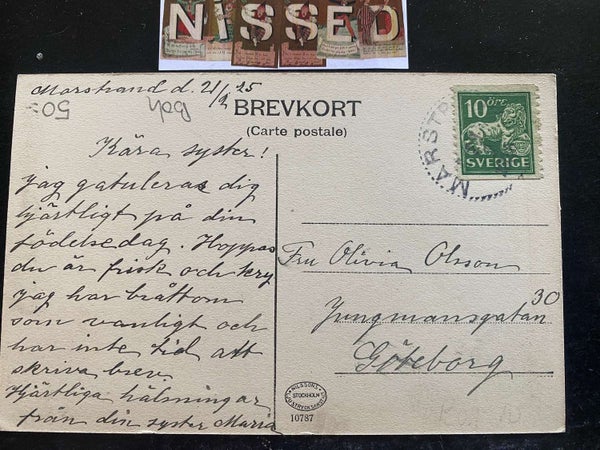 NISSED
Marstrand d. 21/2 25
50:-
BREVKORT
(Carte postale)
10 ÖRE
SVERIGE
MARSTR
Kära syster!
jag gatuleras dig
hjärtligt på din
födelsedag. Hoppas
du är frisk och kry
jag har bråttom
som vanligt och
har inte tid att
skriva brev.
Hjärtliga hälsningar
från din syster Maria
Fru Olivia Olsson
Jungmansgatan 30
Göteborg
NILSSONS
STOCKHOLM
10787